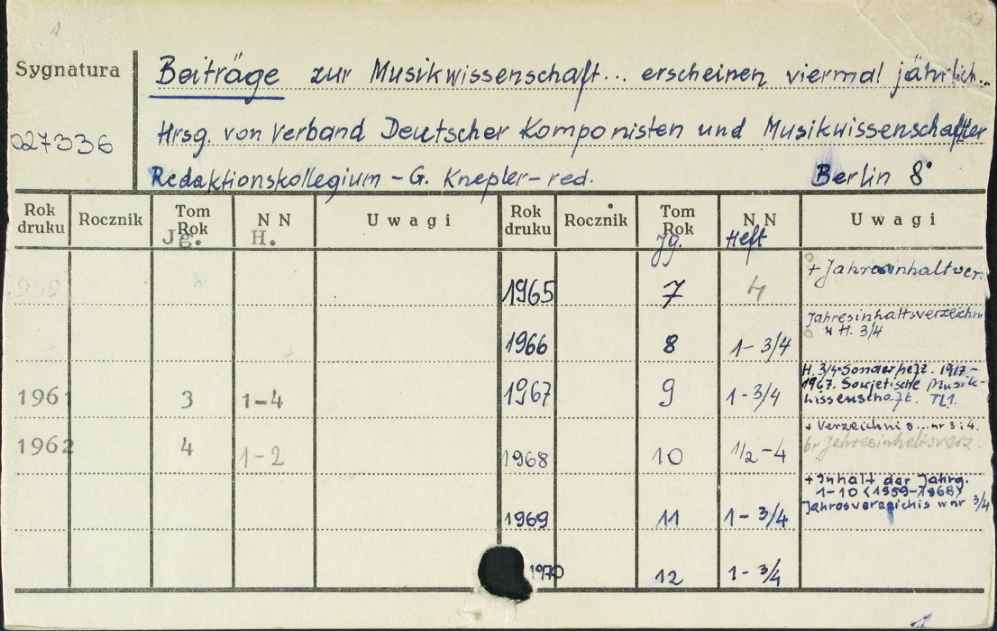 Sygnatura
027336
Beiträge zur Musikwissenschaft... erscheinen viermal jährlich...
Hrsg. von Verband Deutscher Komponisten und Musikwissenschaftler
Redaktionskollegium - G. Knepler - red. Berlin 8°
Rok druku Rocznik Tom Rok N N Uwagi Rok druku Rocznik Tom Rok N N Uwagi
Jg. H. Jg. Heft
1965 7 4 + Jahresinhaltver.
1966 8 1-3/4 Jahresinhaltsverzeichn
w H. 3/4
1961 3 1-4 1967 9 1-3/4 H. 3/4 Sonderheft. 1917-
1967. Sowjetische Musik-
wissenschaft. Tl 1.
1962 4 1-2 1968 10 1/2-4 + Verzeichnis... nr 3 i 4.
br Jahresinhaltsverz.
1969 11 1-3/4 + Inhalt der Jahrg.
1-10 <1959-1968>
w nr 3/4
1970 12 1-3/4